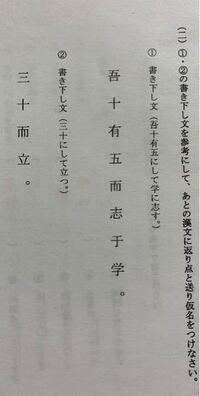 (二)①・②の書き下し文を参考にして、あとの漢文に返り点と送り仮名をつけなさい。
① 書き下し文(吾十有五にして学に志す。)
吾十有五而志于学。
② 書き下し文(三十にして立つ。)
三十而立。